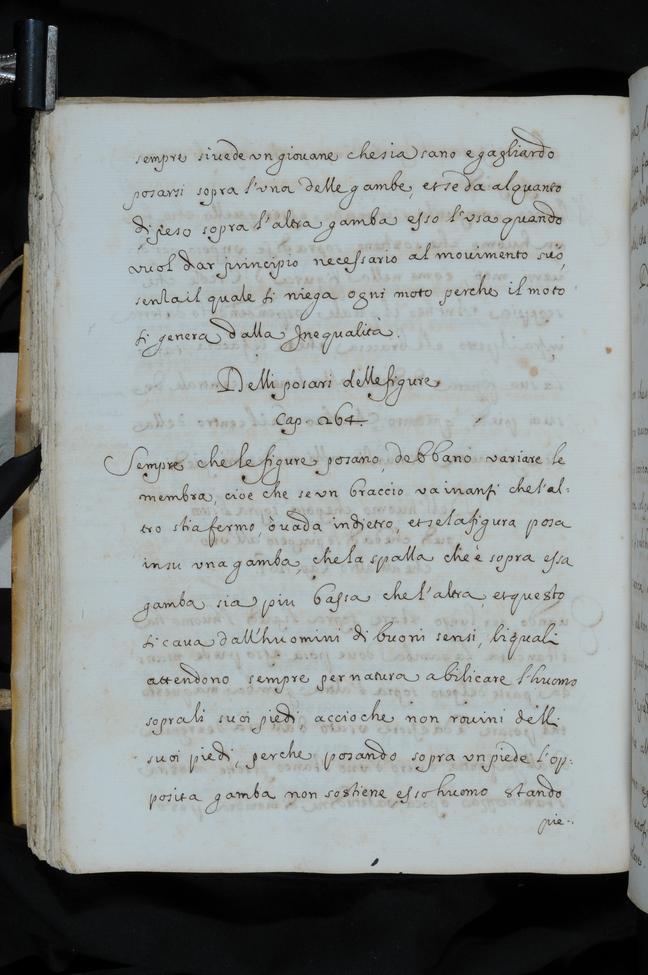 sempre siuede un giouane che sia sano e gagliardo
posarsi sopra l'una delle gambe, et se da alquanto
di peso sopra l'altra gamba esso l'usa quando
vuol dar principio necessario al mouimento suo,
senza il quale si niega ogni moto perche il moto
si genera dalla Inequalità.
Delli posari delle figure
Cap. 264.
Sempre che le figure posano, debbano variare le
membra, cioe che se un braccio va inanzi che l'al-
tro stia fermo, ò uada indietro, et se la figura posa
in su una gamba, che la spalla che è sopra essa
gamba sia piu bassa che l'altra, et questo
si caua dall'huomini di buoni sensi, li quali
attendono sempre per natura a bilicare l'huomo
sopra li suoi piedi accioche non rouini delli
suoi piedi, perche posando sopra un piede l'op-
posita gamba non sostiene esso huomo stando
pie-